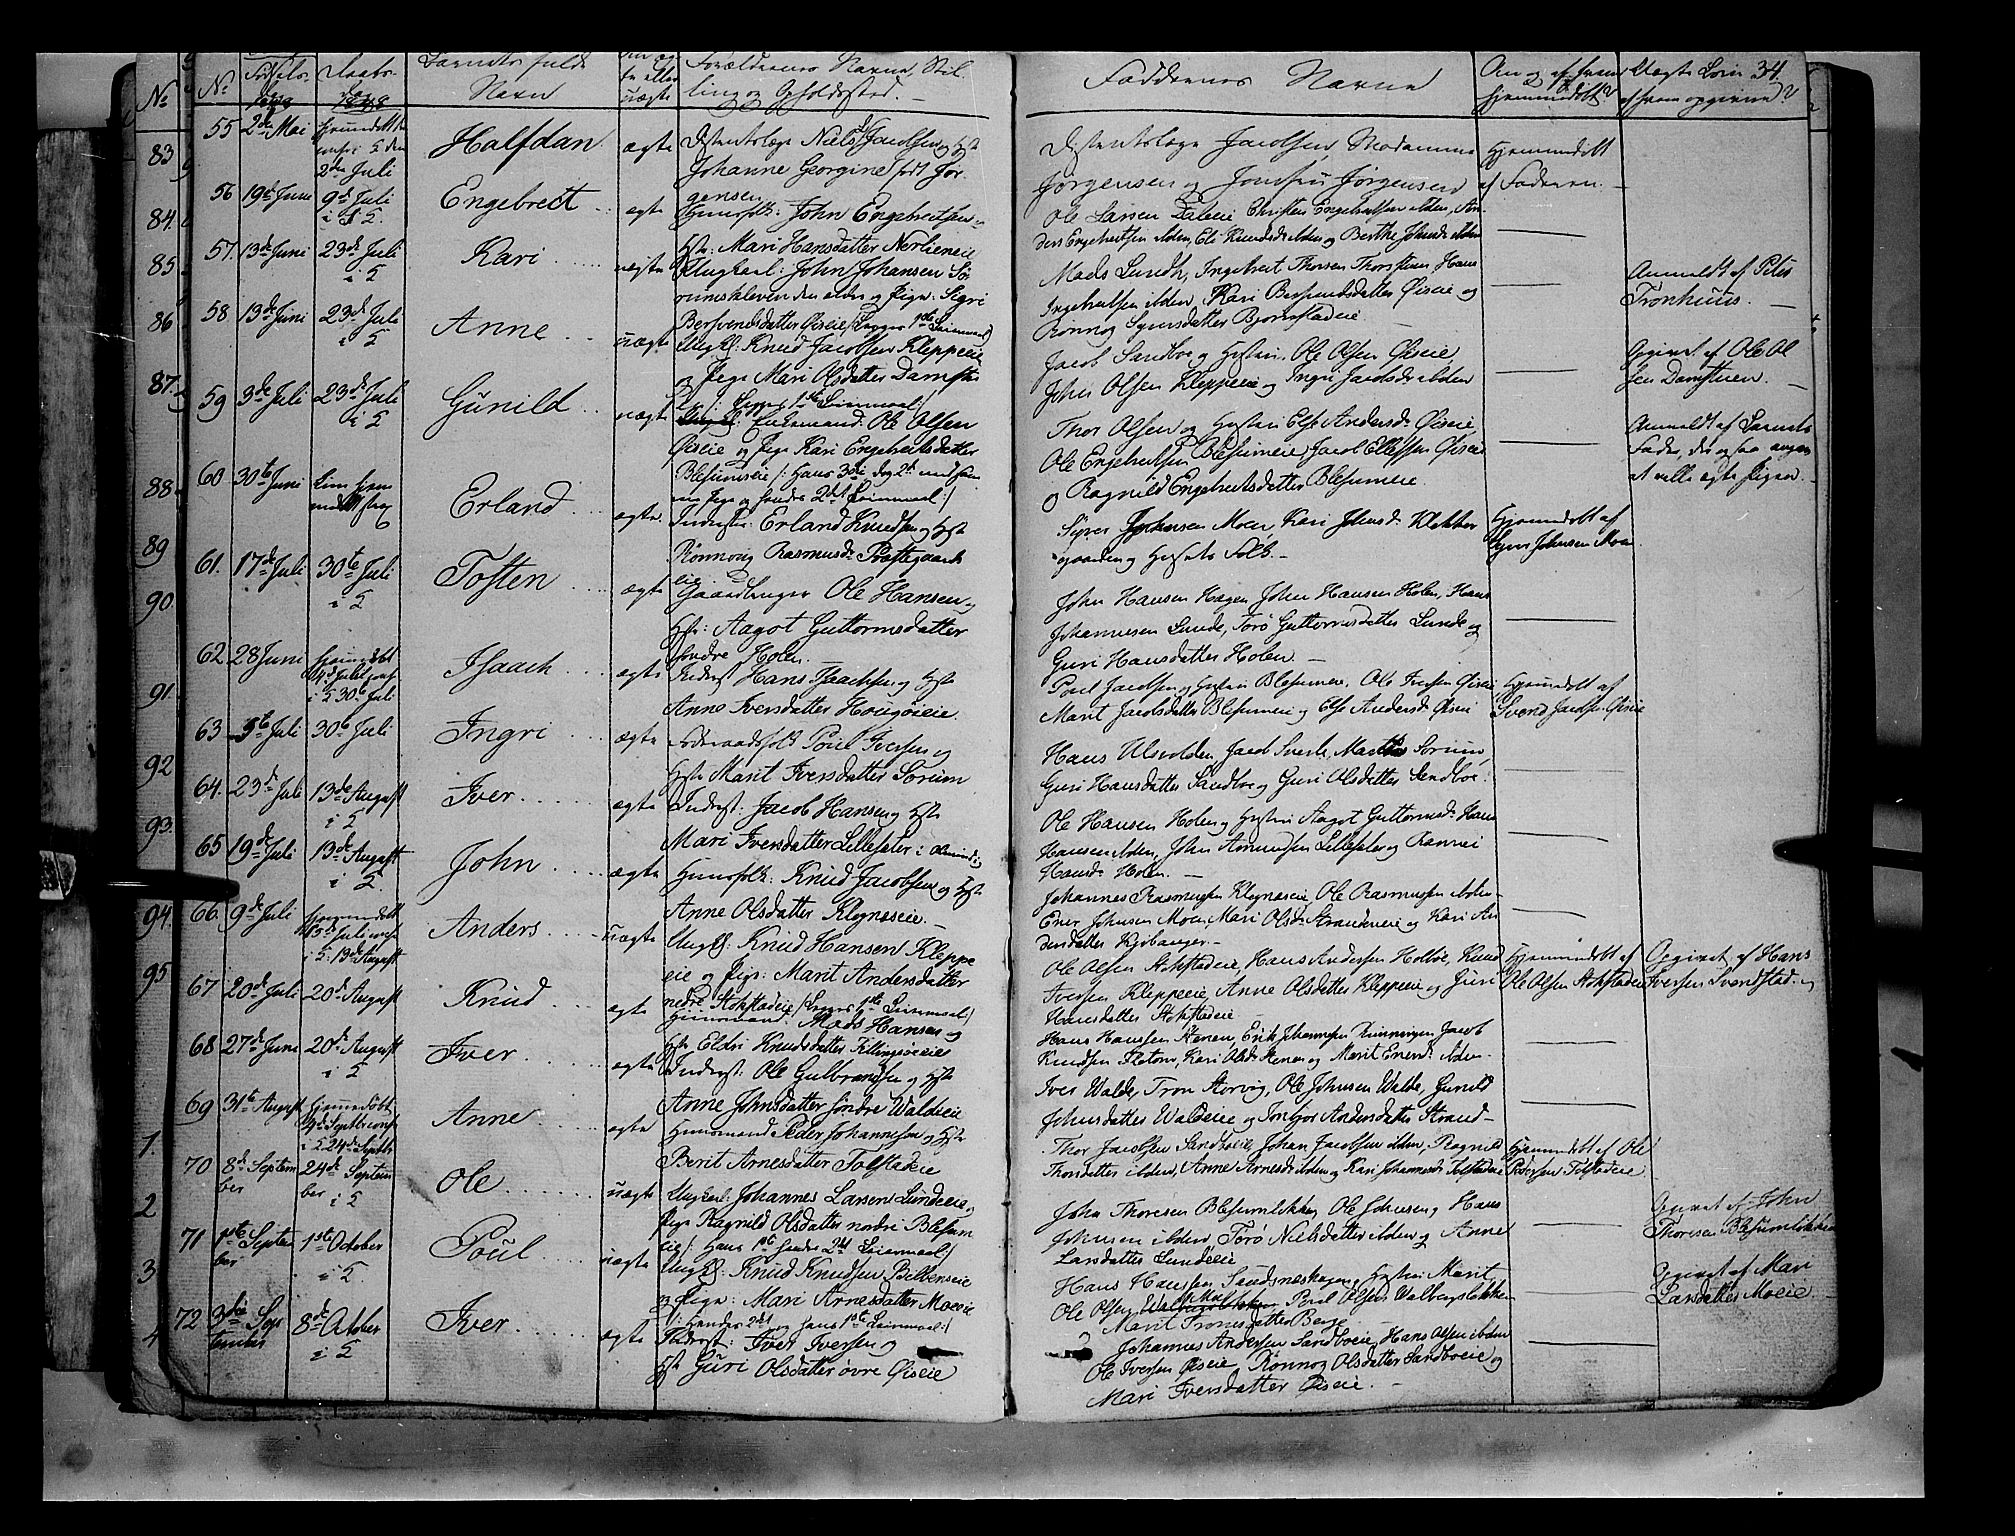 No
Fødsels-
Daabs-
dag
1848
Barnets fulde
Navn
uægte
Forældrenes Navne, Stil-
ling og Opholdssted.
Faddernes Navne
An og af hvem
hjemmedøbt?
34.
55 2de Mai
2den Juli
Halfdan
ægte
Districtslæge Niels Jacobsen og Hst
Johanne Georgine født Jør-
gensen
Districtslæge Jacobsen, Madamme
Jørgensen og Jomfru Jørgensen
Hjemmedøbt
af Faderen.
56 19de Juni 9de Juli
Engebrett
ægte
Huusfolk: John Engebretsen
Hst: Mari Hansdatter Nerlieneie
Ole Larsen Daleeie Christen Engebretsen ibden, An-
ders Engebretsen ibden, Eli Knudsd. ibden og Berthe Johnsd. ibden
57. 13de Juni 23de Juli
i 5
Kari
uægte
Ungkarl: John Johansen Sø-
rumskleven den eldre og Pige: Sigri
Bersvendsdatter Øiseie (Begges 1ste Leiermaal)
Mads Lundh, Ingebret Thorsen Thorstuen Hans
Ingebretsen ibden, Kari Bersvendsdatter Øiseie og
Rønnog Syversdatter Bjørnstadeie
Anmeldt af Peter
Tronhuus.
58 13de Juni 23de Juli
i 5
Anne
uægte
Ungk: Knud Jacobsen Kleppeeie
og Pige Mari Olsdatter Damstu
Jacob Sandboe og Hustru, Ole Olsen Øiseie,
John Olsen Kleppeeie og Ingri Jacobsd. ibden
Opgivet af Ole Ol
sen Damstuen.
59 3de Juli 23de Juli
i 5
Gunild
uægte
Enkemand: Ole Olsen
Øiseie og Pige Kari Engebretsdatter
Thor Olsen og Hustru Else Andersd. Øiseie
Ole Engebretsen Blessumeie, Jacob Ellefsen Øiseie
og Ragnild Engebretsdatter Blessumeie.
Anmeldt af Barnets
Fader, der ogsaa angav
at ville ægte Pigen.
60 30te Juni
Erland
ægte
Inderst: Erland Knudsen og Hst
Rønnoug Rasmusd. Præstegaards
eie
Syver Johnsen Moen, Kari Johnsd. Klokker
gaarden og Husets Folk.
Hjemmedøbt af
Syver Johnsen Moen
61. 17de Juli 30te Juli
i 5
Tosten
ægte
Gaardbruger Ole Hansen og
Hst: Aagot Guttormsdatter
søndre Holen.
John Hansen Hagen, John Hansen Holen, Hans
Johannesen Lunde, Torø Guttormsdatter Lunde og
Guri Hansdatter Holen.
62 28 Juni
i 5 30te Juli
Isaach
ægte
Inderst Hans Isaachsen og Hst
Anne Iversdatter Hougøieie.
Poul Jacobsen og Hustru Blessumeie, Ole Iversen Øiseie
Marit Jacobsdatter Blessumeie og Else Andersd. Øiseie
Hjemmedøbt af
Svend Jacobsen Øiseie
63 5te Juli 30te Juli
Ingri
ægte
Føderaadsfolk Poul Iversen og
Hst: Marit Iversdatter Sørum
Hans Ulsvolden, Jacob Sverle, Mari Sørum,
Guri Hansdatter Sandbo og Guri Olsdatter Sandboe.
64. 23de Juli 13de August
i 5
Iver
ægte
Inderst: Jacob Hansen og Hst
Mari Iversdatter Lillesæter
Ole Hansen Holen og Hustru Aagot Guttormsd. Hans
Hansen ibden, John Amundsen Lillesæter og Rannei
Hansd: Holen.
65 19de Juli 13de August
i 5
John
ægte
Huusfolk: Knud Jacobsen og Hst
Anne Olsdatter Klegneseie.
Johannes Rasmussen Klegneseie, Ole Rasmussen ibden
Ener Johnsen Moen, Mari Olsd. Strandeneie og Kari An
dersdatter Kjøbanger.
66. 9de Juli
i 5: 13de August
Anders
uægte
Ungk: Knud Hansen Kleppe
eie og Pige: Marit Andersdatter
nedre Stokstadeie (Begges 1ste Leiermaal)
Ole Olsen Stokstadeie, Hans Andersen Holbøe, Knud
Iversen Kleppeeie, Anne Olsdatter Kleppeeie og Guri
Hansdatter Stokstadeie
Hjemmedøbt af
Ole Olsen Stokstadeie
Opgivet af Hans
Iversen Svendstad.
67 20de Juli 20de August
Knud
ægte
Huusmand: Mads Hansen og
Hst Eldri Knudsdatter Killingøieie
Hans Hanssen Stenen, Erik Johannesen Rinningen, Jacob
Knudsen Flatom, Kari Olsd. Stenen og Marit Enersd: ibden.
68 27de Juni 20de August
i 5
Iver
ægte
Inderst: Ole Gulbrandsen og Hst
Anne Johnsdatter søndre Waldeeie
Iver Walde, Tron Storvig, Ole Johnsen Walde, Gunild
Johnsdatter Waldeeie og Ingbor Andersdatter Strand
69 31te August
i 5 24de Septbr
Anne
ægte
Huusmand Peder Johannesen og Hst
Berit Arnesdatter Tolstadeie
Thor Jacobsen Sandboeie, Johan Jacobsen ibden, Ragnild
Thorsdatter ibden, Anne Arnesd. ibden og Kari Johannesd. Tolstadeie
Hjemmedøbt af Ole
Tolstadeie.
70 8de Septem
ber
24de Septem
ber i 5
Ole
uægte
Ungkarl: Johannes Larsen Lundeeie og
Pige Ragnild Olsdatter nordre Blessum
eie (: Hans 1ste hendes 2det Leiermaal)
John Thoresen Blessumløkken Ole Johnsen og Hans
Johnsen ibden, Torø Nielsdatter ibden og Anne
Larsdatter Lundeeie
Opgivet af John
Thoresen Blessumløkken
71 1ste Septem
ber
1ste October
i 5
Poul
uægte
Ungk: Knud Knudsen Bilbenseie
og Pige: Mari Arnesdatter Moeie
(: Hendes 2det og hans 1ste Leiermaal:)
Hans Hanssen Sandsneshagen og Hustru Marit
Ole Olsen Poul Olsen Walbergsløkken
Marit Tronsdatter Berge
Opgivet af Mari
Larsdatter Moeie
72 3die Sep
tember
8de October
i 5
Iver
ægte
Inderst: Iver Iversen og
Hst Guri Olsdatter øvre Øiseie
Johannes Andersen Sandboeie, Hans Olsen ibden
Ole Iversen Øiseie, Rønnog Olsdatter Sandboeie og
Mari Iversdatter Øiseie.
No
83
84.
85.
86.
87.
88.
89
90.
91.
92
93.
94.
95
1.
2
3
4